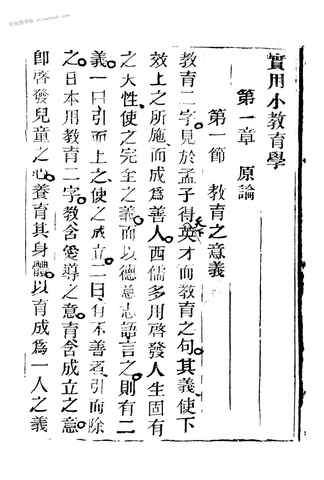 實用小教育學
第一章 原論
第一節 教育之意義
教育二字見於孟子得天下英才而教育之句其義使下
效上之所施而成爲善人西儒多用啓發人生固有
之大性使之完全之義而以德意志語言之則有二
義一曰引而上之使之成立二曰有不善者引而除
之日本用教育二字教含愛導之意育含成立之意
卽啓發兒童之心養育其身體以育成爲一人之義